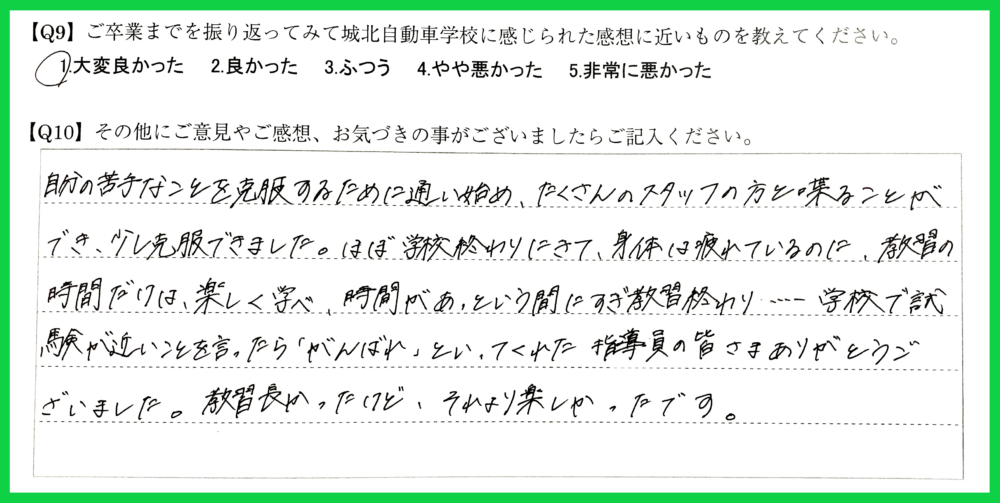 【Q9】ご卒業までを振り返ってみて城北自動車学校に感じられた感想に近いものを教えてください。
1.大変良かった 2.良かった 3.ふつう 4.やや悪かった 5.非常に悪かった
【Q10】その他にご意見やご感想、お気づきの事がございましたらご記入ください。
自分の苦手なことを克服するために通い始め、たくさんのスタッフの方と喋ることが
でき、少し克服できました。ほぼ学校終わりにきて、身体は疲れているのに、教習の
時間だけは、楽しく学べ、時間があっという間にすぎ教習終わり……学校で試
験が近いことを言ったら「がんばれ」といってくれた指導員の皆さまありがとうご
ざいました。教習長かったけど、それより楽しかったです。